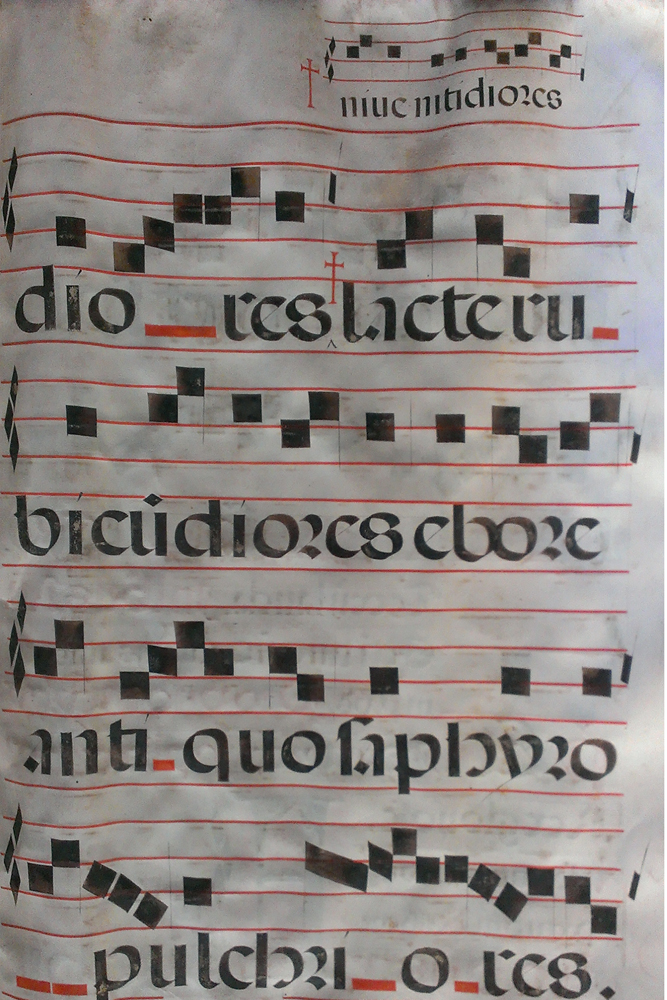 † niue nitidiores
dio res † lacte ru
bicũdiores ebore
anti quo saphyro
pulchri o res.